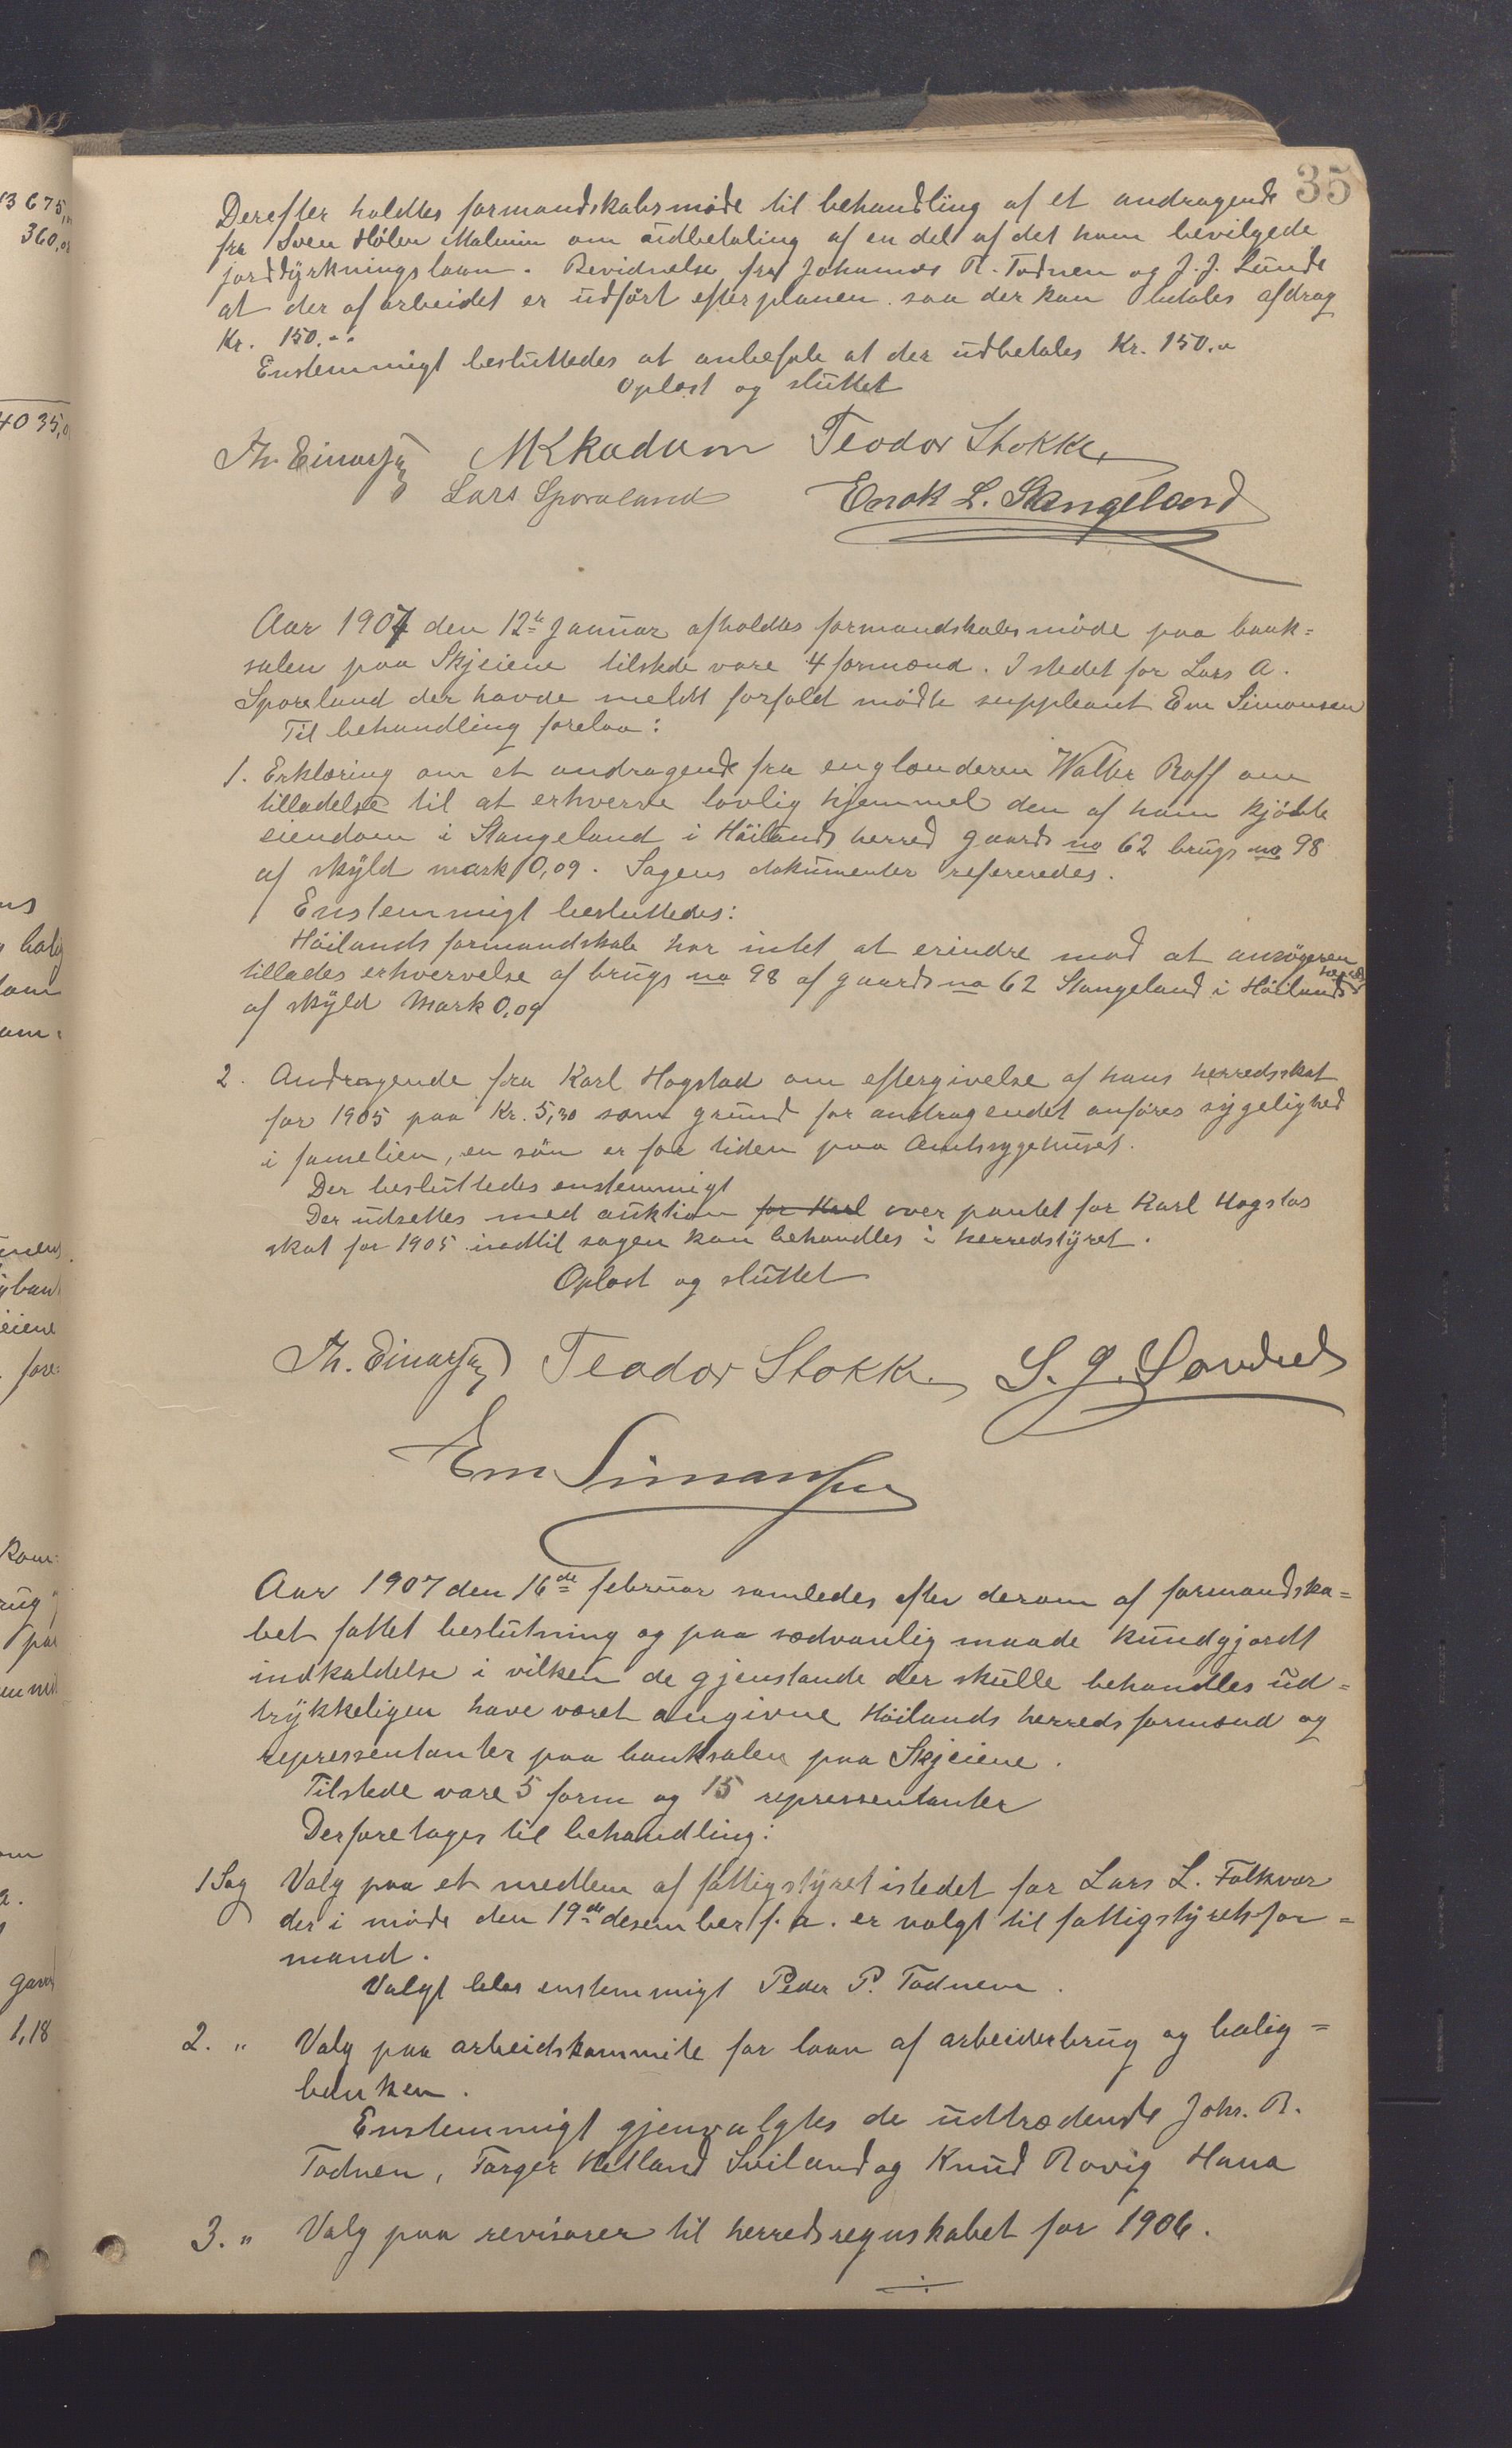 35
Derefter holdtes formandskabsmøde til behandling af et andragende
fra Sven Hølen Malmin om udbetaling af en del af det ham bevilgede
jorddyrkningslaan. Bevidnelse fra Johannes R. Todnem og J. J. Lunde
at der af arbeidet er udført efter planen saa der kan betales afdrag
Kr. 150.--
Enstemmigt besluttedes at anbefale at der udbetales Kr. 150.-
Oplæst og sluttet
Th. Einarsen M K kadem Teodor Stokke
Lars Sporaland Enok L. Stangeland
Aar 1907 den 12te Januar afholdes formandskabsmøde paa bank=
salen paa Skjeiene tilstede vare 4 formænd. I stedet for Lars A.
Sporaland der havde meldt forfald mødte suppleant Em Simonsen
Til behandling forelaa:
1. Erklæring om et andragende fra englænderen Walter Roff om
tilladelse til at erhverve lovlig hjemmel den af ham kjøbte
eiendom i Stangeland i Høilands herred gaards no 62 brugs no 98
af skyld mark 0,09. Sagens dokumenter refereredes.
Enstemmigt besluttedes:
Høilands formandskab har intet at erindre mod at ansøgeren
tillades erhvervelse af brugs no 98 af gaards no 62 Stangeland i Høilands herred
af skyld Mark 0,09
2. Andragende fra Karl Hogstad om eftergivelse af hans herredsskat
for 1905 paa Kr. 5,30 som grund for andragendet anføres sygelighed
i famelien, en søn er for tiden paa Amtssygehuset.
Der besluttedes enstemmigt
Der udsettes med auktion for Karl over pantet for Karl Hogstas
skat for 1905 indtil sagen kan behandles i herredstyret.
Oplæst og sluttet
Th. Einarsen Teodor Stokke S. G. Sandved
Em Simonsen
Aar 1907 den 16de februar samledes efter derom af formandska=
bet fattet beslutning og paa sædvanlig maade kundgjordt
indkaldelse i vilken de gjenstande der skulle behandles ud=
trykkeligen have været angivne Høilands herreds formænd og
repressentanter paa banksalen paa Skjeiene.
Tilstede vare 5 form og 15 repressentanter
Derforetages til behandling:
1 Sag Valg paa et medlem af fattigstyret istedet for Lars L. Folkvor
der i møde den 19de desember f. a. er valgt til fattigstyrets for=
mand.
Valgt blev enstemmigt Peder P. Todnem.
2. " Valg paa arbeidskommite for laan af arbeiderbrug og bolig=
banken.
Enstemmigt gjenvalgtes de udtrædende Johs. R.
Todnem, Torger Hetland Sviland og Knud Rovig Hana
3. " Valg paa revisorer til herredsregnskabet for 1906.